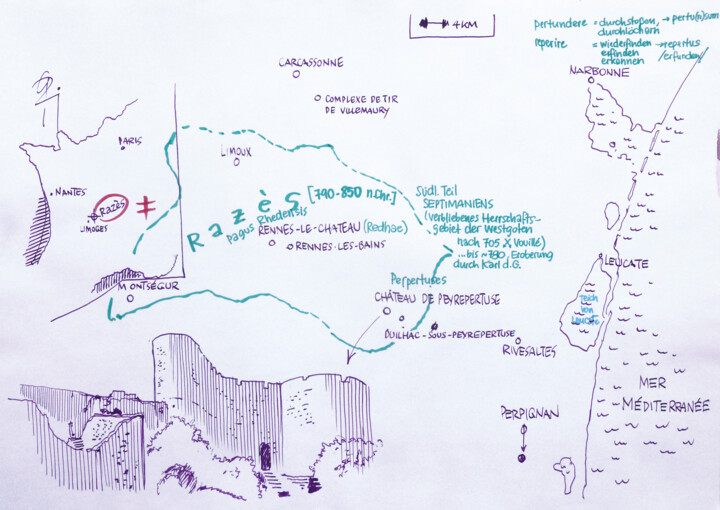 4 KM
pertundere = durchstoßen, → pertu(n)sum
durchlöchern
reperire = wiederfinden → repertus
erfinden /erfunden/
erkennen
CARCASSONNE
NARBONNE
COMPLEXE DE TIR
DE VILLEMAURY
PARIS
LIMOUX
NANTES
Razès
≠
LIMOGES
Razès [790-850 n.Chr.]
Pagus Rhedensis
RENNES-LE-CHATEAU (Redhae)
RENNES-LES-BAINS
Südl. Teil
SEPTIMANIENS
(verbliebenes Herrschafts-
gebiet der Westgoten
nach 705 X Vouillé)
...bis ~790, Eroberung
durch Karl d.G.
LEUCATE
MONTSÉGUR
Perpertuses
CHÂTEAU DE PEYREPERTUSE
Teich
von
Leucate
DUILHAC-SOUS-PEYREPERTUSE
RIVESALTES
MER
MÉDITERRANÉE
PERPIGNAN